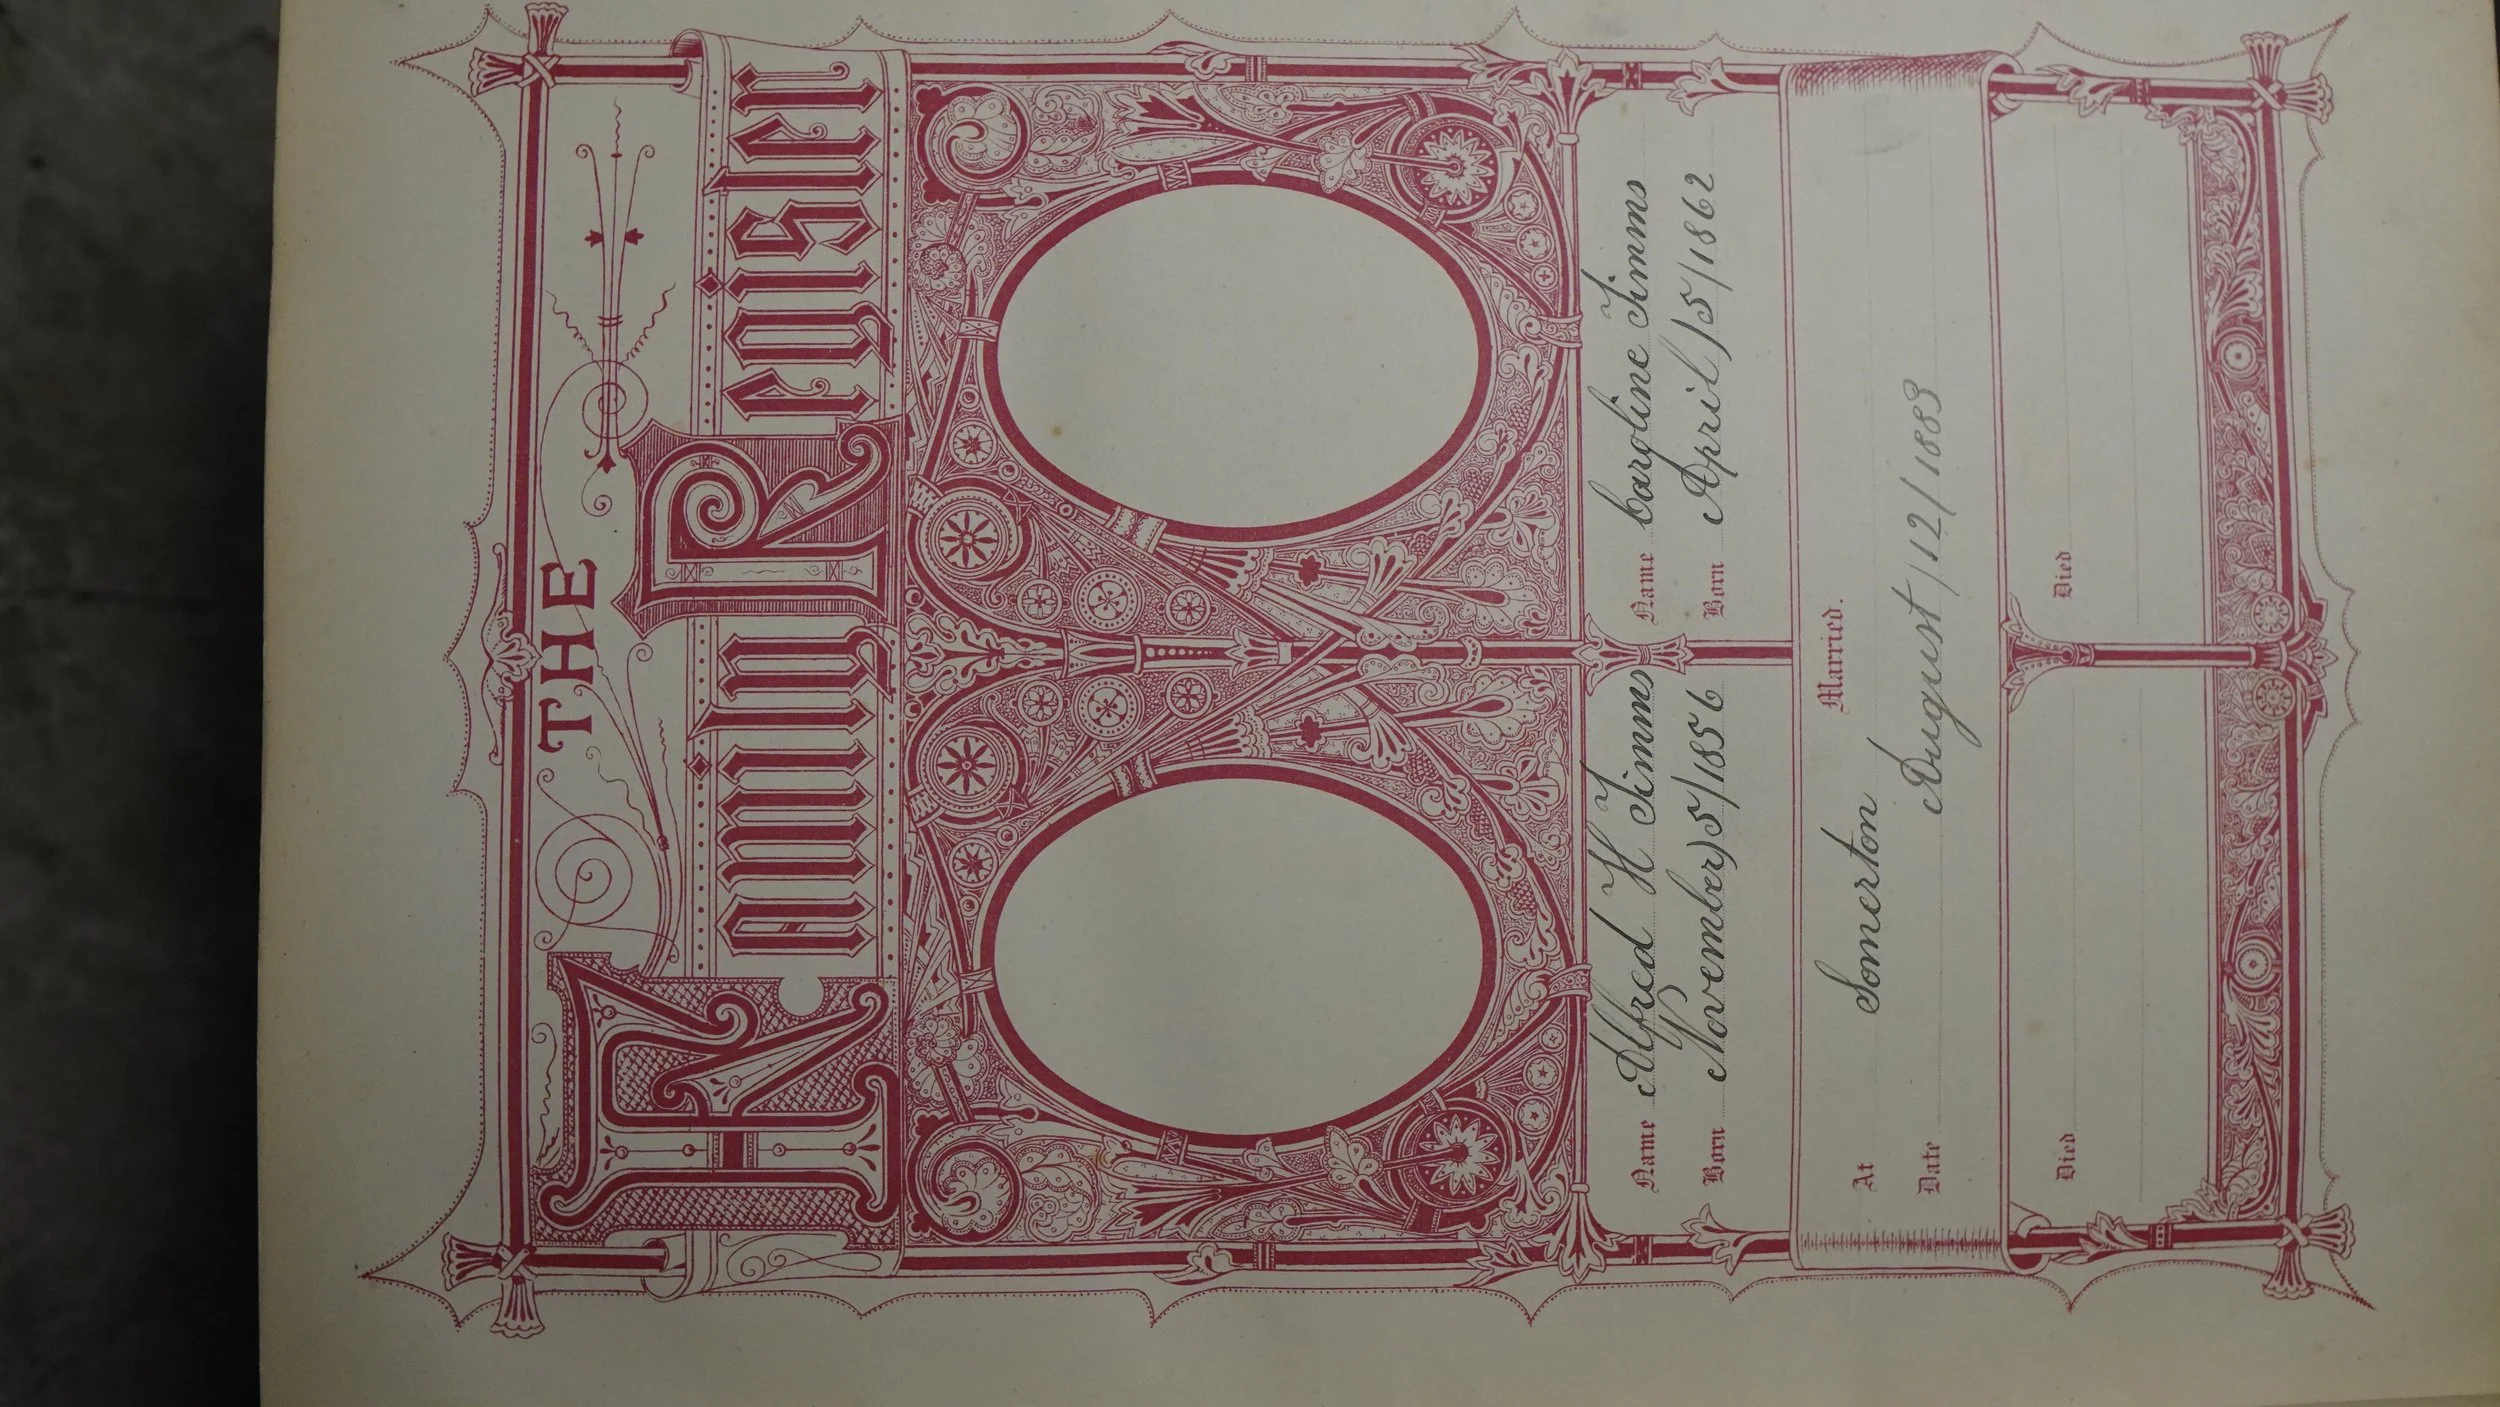 THE
Family Register
Name Alfred H Timms
Born November/5/1856
Name Caroline Timms
Born April/5/1862
Married.
At Somerton
Date August/12/1883
Died
Died